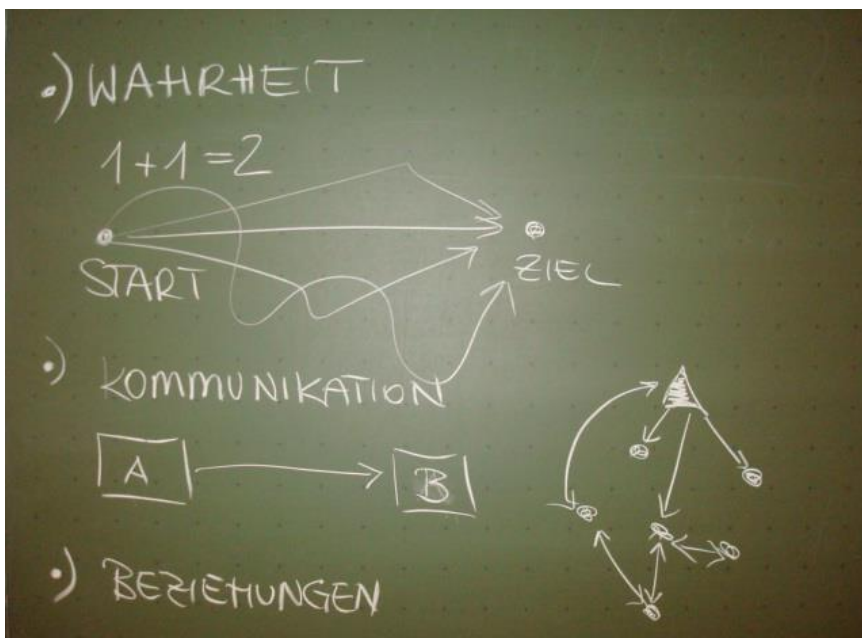 •) WAHRHEIT
1+1=2
START
ZIEL
•) KOMMUNIKATION
A
B
•) BEZIEHUNGEN